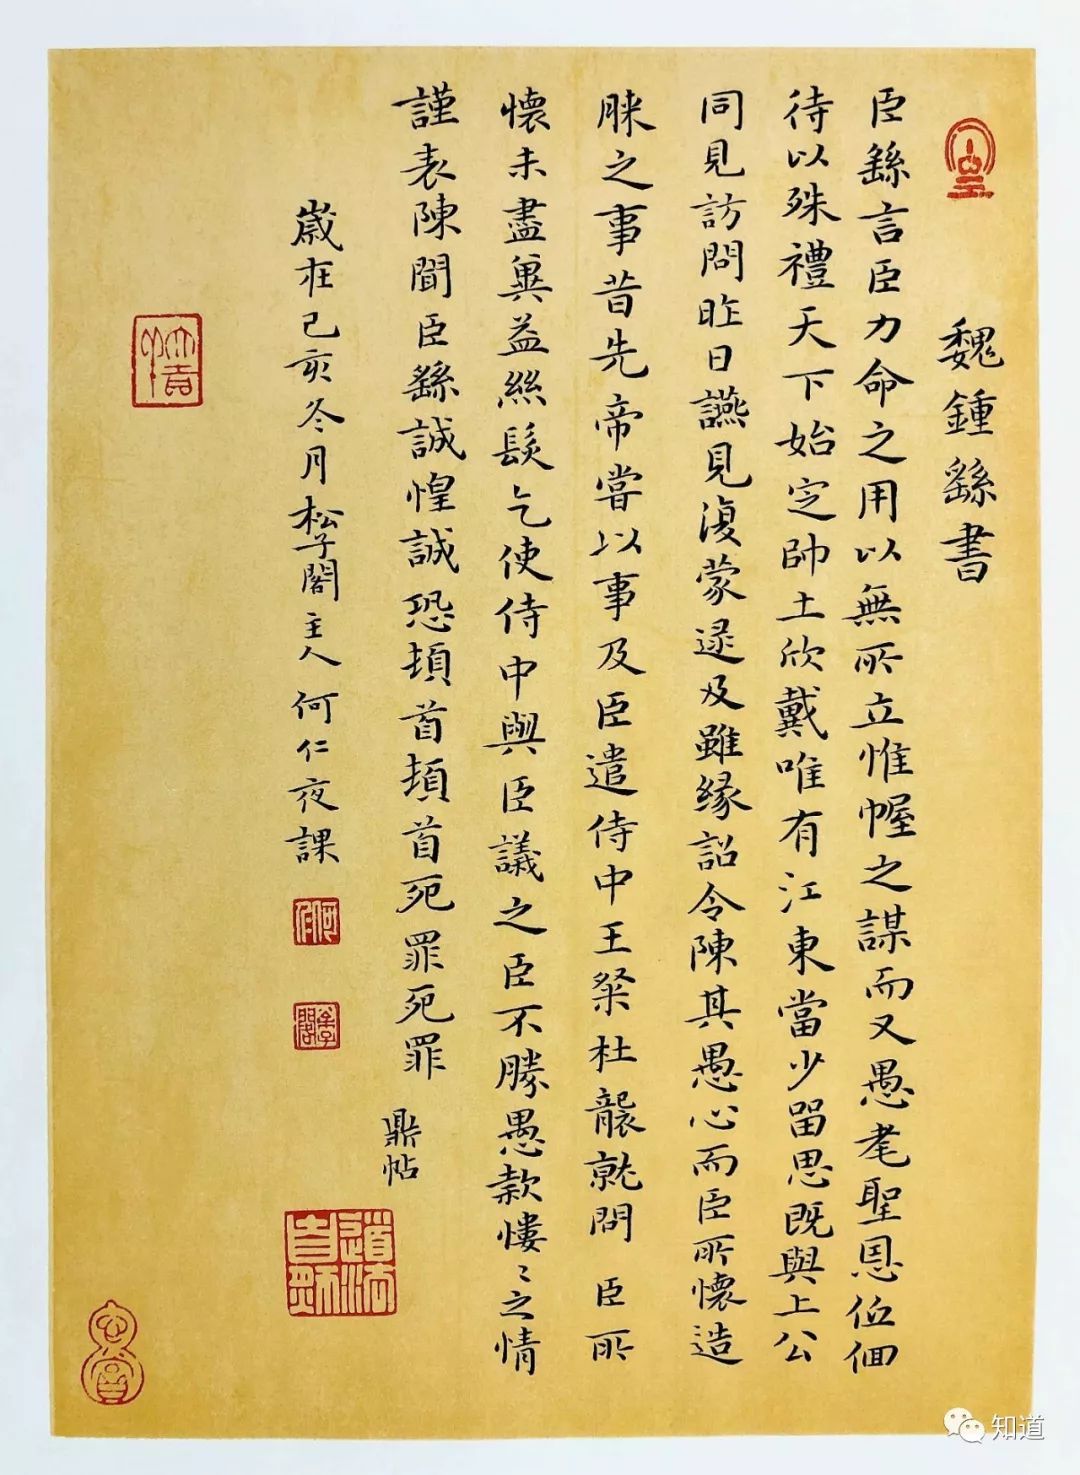 魏鍾繇書
臣繇言臣力命之用以無所立惟幄之謀而又愚耄聖恩伍佪
待以殊禮天下始定帥土欣戴唯有江東當少留思既與上公
同見訪問昨日讌見復蒙逮及雖緣詔令陳其愚心而臣所懷造
膝之事昔先帝嘗以事及臣遣侍中王粲杜襲就問臣所
懷未盡冀益絲髮乞使侍中與臣議之臣不勝愚款慺〻之情
謹表陳聞臣繇誠惶誠恐頓首頓首死罪死罪
鼎帖
歲在己亥冬月松子閣主人何仁夜課
道法自然
知道